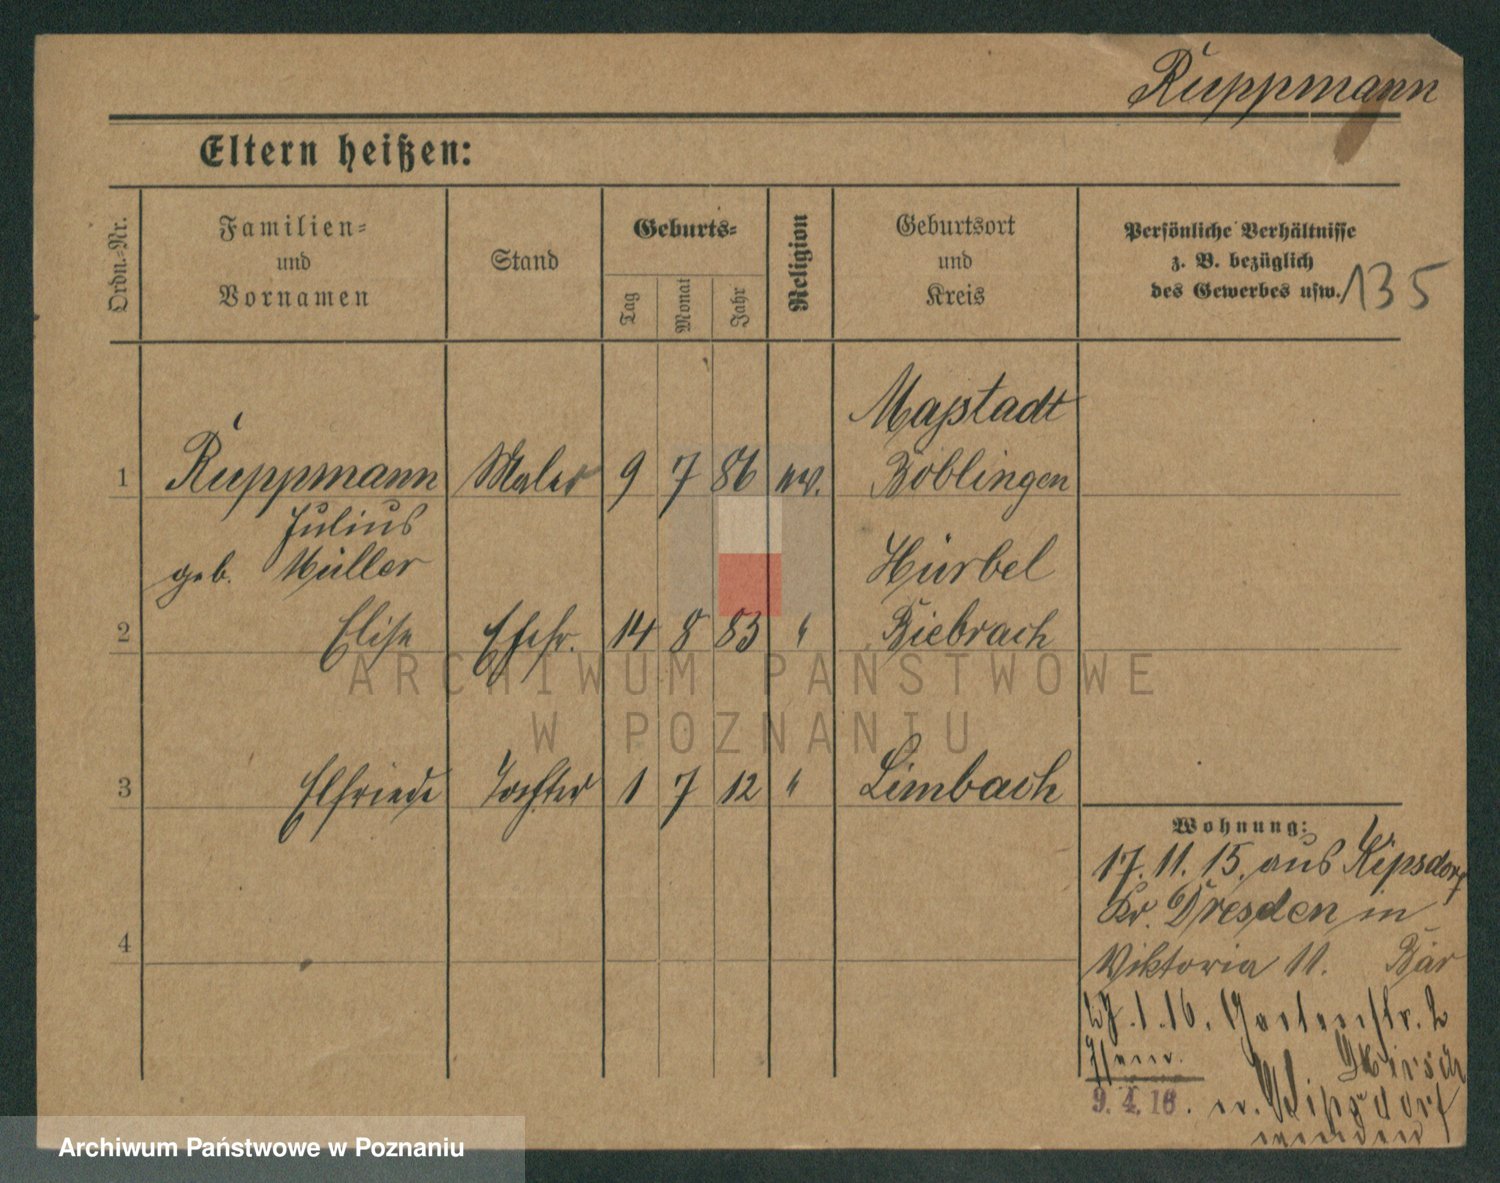 Ruppmann
Eltern heißen:
Ordn.-Nr.
Familien-
und
Vornamen
Stand
Geburts-
Tag
Monat
Jahr
Religion
Geburtsort
und
Kreis
Persönliche Verhältnisse
z. B. bezüglich
des Gewerbes usw.
135
Maƒstadt
1 Ruppmann Maler 9 7 86 ev. Böblingen
Julius
geb. Müller Hürbel
2 Elise Ehefr. 14 8 83 " Biebrach
ARCHIWUM PAŃSTWOWE
W POZNANIU
3 Elfriede Tochter 1 7 12 " Limbach
Wohnung:
17. 11. 15. aus Kipsdorf
Kr. Dresden in
Viktoria 11. Bär
4
27.1.16. Gartenstr. 2
9. 4. 16. n. Kipsdorf
Archiwum Państwowe w Poznaniu